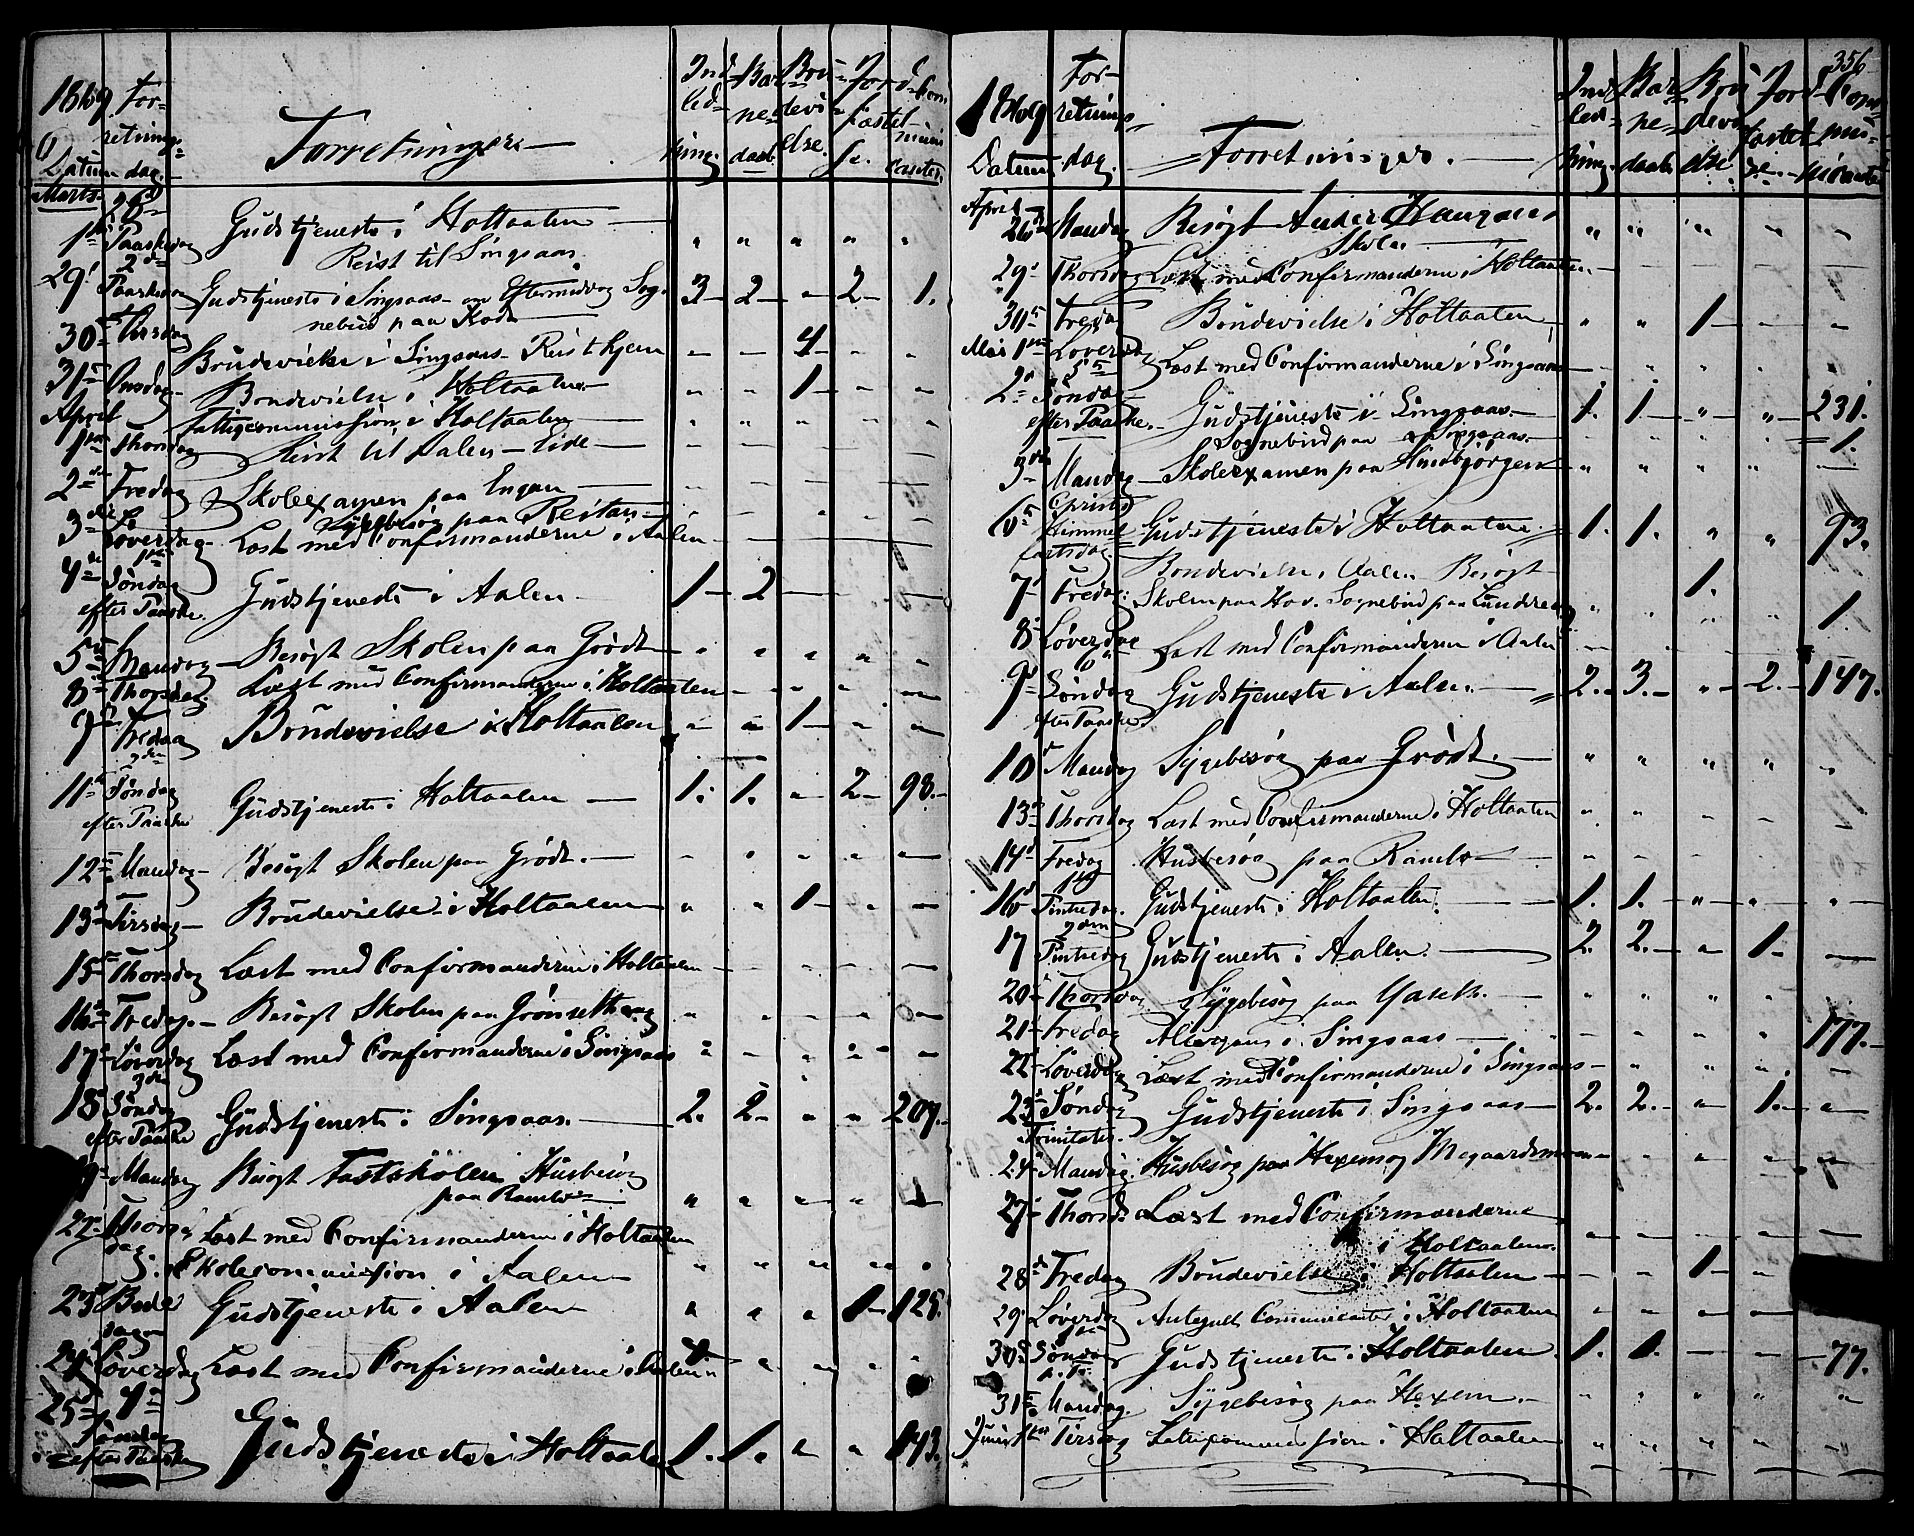 1869 For- Ind- Bar- Bru- Jord- Com-
retnings- led- ne- devi- fæstel- muni-
Datum dag. Forretninger ning. daab. else. se. canter.
Marts
28 1ste Paaskedag Gudstjeneste i Holtaalen
Reist til Singsaas " " " " "
29 2den Paaskedag Gudstjeneste i Singsaas - om Eftermiddag Sog- 3 - 2 - " - 2 - 1.
nebud paa
30 Tirsdag Brudevielse i Singsaas - Reist hjem - - 4 - " "
31 Onsdag - Brudevielse i Holtaalen - " " 1 - " "
April Fattigcommission i Holtaalen " " " " "
1ste Thorsdag Reist til Aalen - Eide
2den Fredag Skoleexamen paa Engan
Sygebesøg paa Reitan
3die Løverdag - Læst med Confirmanderne i Aalen
4de 1ste Søndag efter Paaske. Gudstjeneste i Aalen 1 - 2 - - - -
5 Mandag - Besøgt Skolen paa Grødt
8 Thorsdag Læst med Confirmanderne i Holtaalen
9 Fredag Brudevielse i Holtaalen - - 1 - " -
11 2den Søndag efter Paaske Gudstjeneste i Holtaalen 1. 1. - 2 - 98.
12 Mandag - Besøgt Skolen paa Grødt.
13 Tirsdag - Brudevielse i Holtaalen " " 1 - " -
15 Thorsdag Læst med Confirmanderne i Holtaalen
16 Fredag. - Besøgt Skolen paa Grønsetheng
17 Løverdag Læst med Confirmanderne i Singsaas
18 3die Søndag efter Paaske Gudstjeneste i Singsaas. 2. 2 - " " 209.
Mandag Besøgt Fastskolen Husbesøg
paa Ramlo " " " " 1
22 Thorsdag. Læst med Confirmanderne i Holtaalen
Skolecommission i Aalen " " " " "
23 Bededagen Gudstjeneste i Aalen " " " 1 - 125.
24 Løverdag Læst med Confirmanderne i Aalen
25 4de Søndag efter Paaske Gudstjeneste i Holtaalen 1. 1. " " 143.
356
1869 For- Ind- Bar- Bru- Jord- Com-
retnings- led- ne- devi- fæstel- mu-
Datum dag. Forretninger. ning. daab. else se. nicanter
April
26 Mandag Besøgt Haugens
Skole
29 Thorsdag Læst med Confirmanderne i Holtaalen.
30 Fredag Brudevielse i Holtaalen " " 1 - " "
Mai 1ste Løverdag Læst med Confirmanderne i Singsaas
2 5te Søndag efter Paaske. Gudstjeneste i Singsaas. 1. 1. " " 231.
Sognebud paa Singsaas. 1.
3die Mandag - Skoleexamen paa " " " " -
6 Christi Himmelfartsdag. Gudstjeneste i Holtaalen 1. 1. " " 93.
Brudevielse i Aalen Besøgt
7 Fredag. Skolen paa Hov. Sognebud paa 1. 1.
8 Løverdag Læst med Confirmanderne i Aalen
9 6te Søndag efter Paaske Gudstjeneste i Aalen. 2. 3. " 2. 147.
10 Mandag Sygebesøg paa Grødt. " " " " "
13 Thorsdag Læst med Confirmanderne i Holtaalen
14 Fredag Husbesøg paa Ramlo
16 1ste Pintsedag. Gudstjeneste i Holtaalen. 1. 1. " " "
17 2den Pintsedag Gudstjeneste i Aalen. 2. 2. - 1. -
20 Thorsdag Sygebesøg paa
21 Fredag Altergang i Singsaas 177.
22 Løverdag Læst med Confirmanderne i Singsaas
23 Søndag Trinitatis. Gudstjeneste i Singsaas 2. 2. " 1. "
24 Mandag. Husbesøg paa Hexem og Megaardsmoen
27 Thorsd. Læst med Confirmanderne
i Holtaalen.
28 Fredag Brudevielse i Holtaalen - " 1 - "
29 Løverdag Antegnelt Communicanter i Holtaalen
30 1ste Søndag p. Tr. Gudstjeneste i Holtaalen. 1. 1. - - 77.
31 Mandag. Sygebesøg paa Hexem.
Juni 1ste Tirsdag i Holtaalen " " " " "